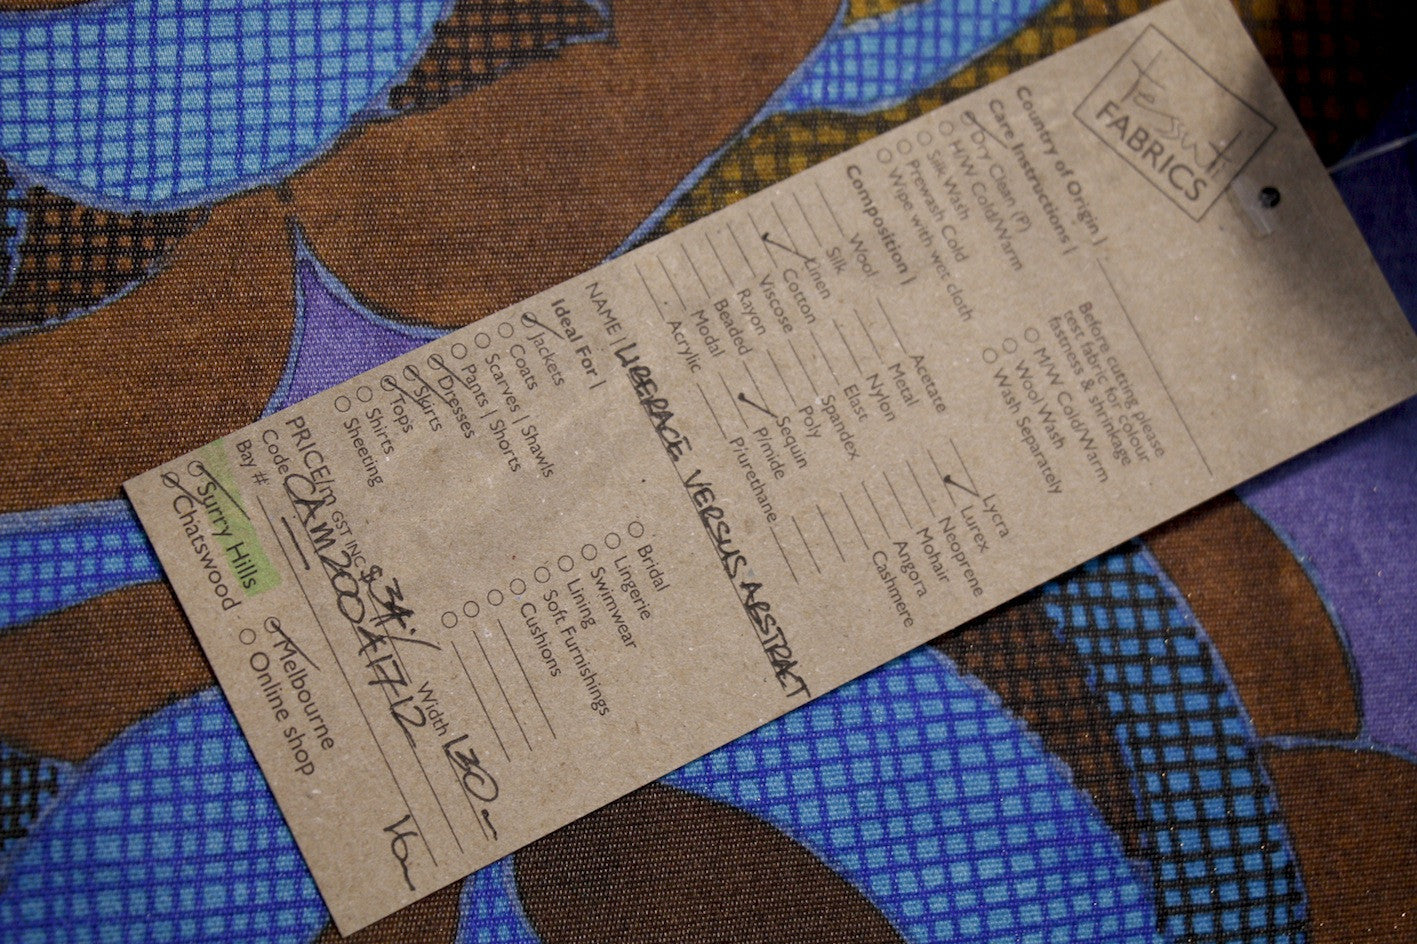 Tessuti
FABRICS
Country of Origin |
Care Instructions |
Dry Clean (P)
H/W Cold/Warm
Silk Wash
Prewash Cold
Wipe with wet cloth
Before cutting please
test fabric for colour
fastness & shrinkage
M/W Cold/Warm
Wool Wash
Wash Separately
Composition |
Wool
Silk
Linen
Cotton
Viscose
Rayon
Beaded
Modal
Acrylic
Acetate
Metal
Nylon
Elast
Spandex
Poly
Sequin
P/mide
P/urethane
Lycra
Lurex
Neoprene
Mohair
Angora
Cashmere
NAME | LIBERACE VERSUS ABSTRACT
Ideal For |
Jackets
Coats
Scarves | Shawls
Pants | Shorts
Dresses
Skirts
Tops
Shirts
Sheeting
Bridal
Lingerie
Swimwear
Lining
Soft Furnishings
Cushions
PRICE/m GST INC $34./ Width 130
Code CAM200A1712
Bay #
Surry Hills
Chatswood
Melbourne
Online shop